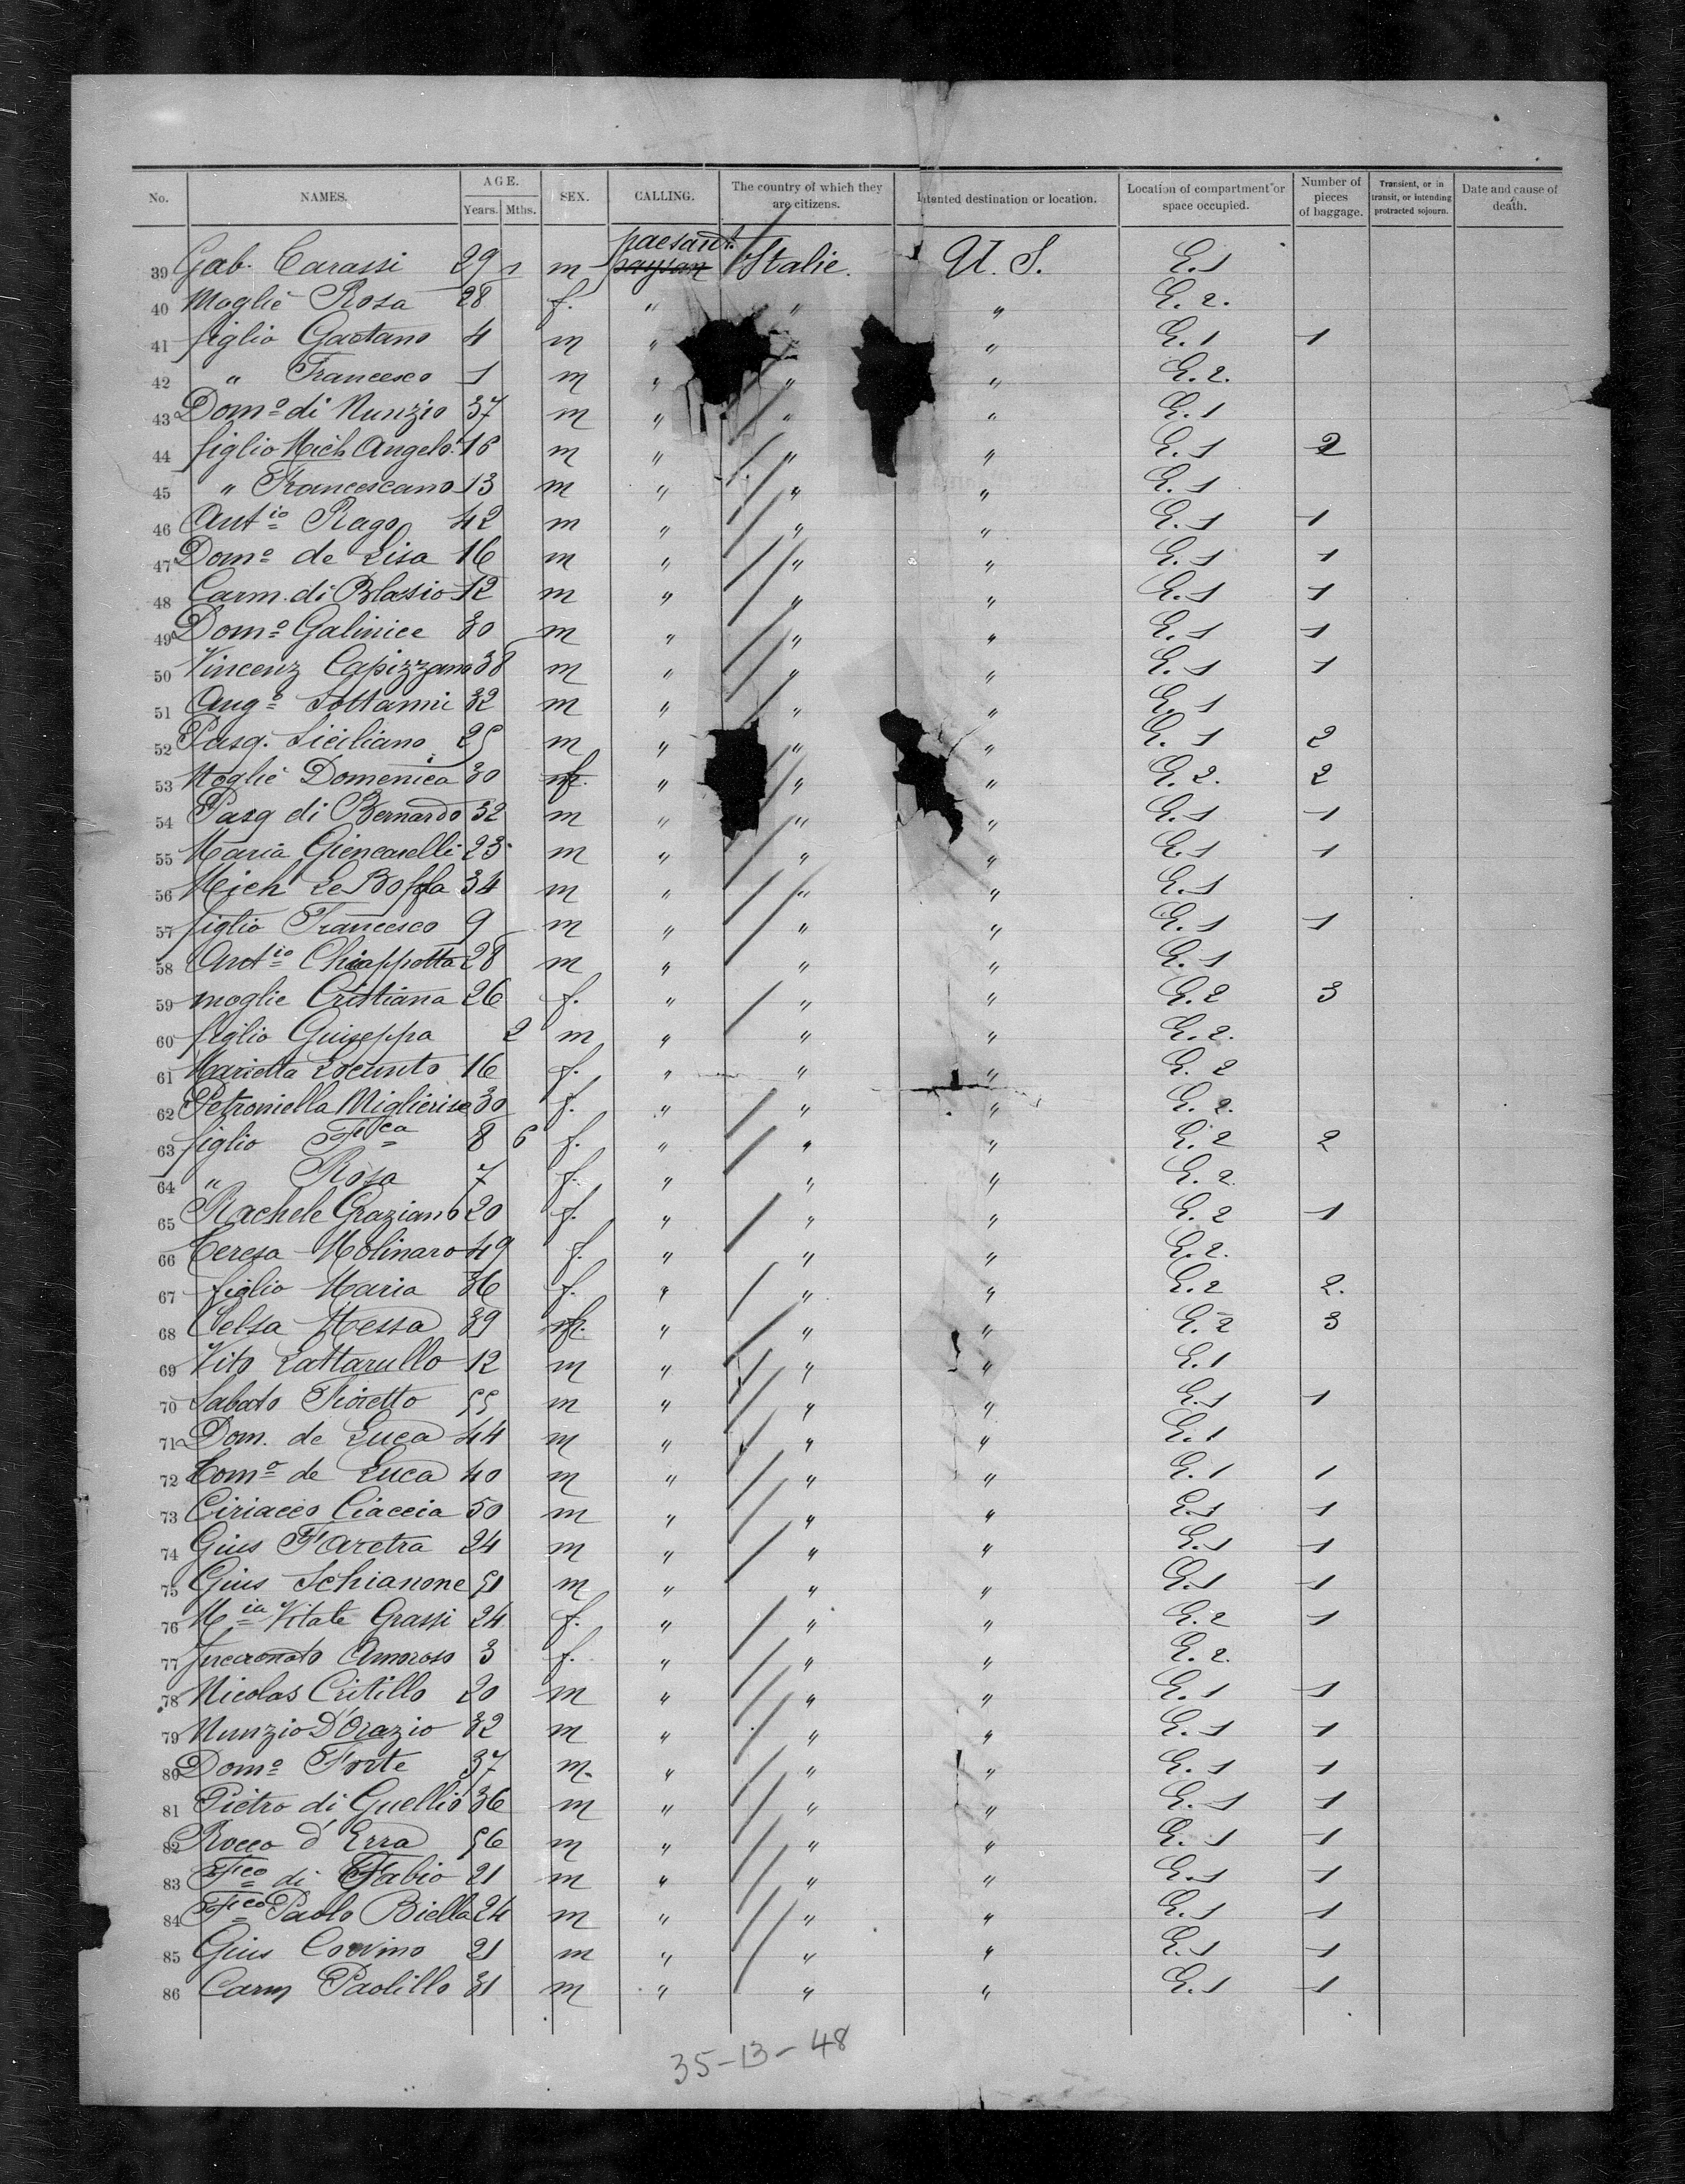 No. NAMES. AGE. Years. Mths. SEX. CALLING. The country of which they are citizens. Intented destination or location. Location of compartment or space occupied. Number of pieces of baggage. Transient, or in transit, or intending protracted sojourn. Date and cause of death.
39 Gab. Carassi 29 1 m paesant. paysan Italie. U. S. E. 1
40 Moglie Rosa 28 f. " " " E. 2.
41 figlio Gaetano 4 m " " " E. 1 1
42 " Francesco 1 m " " " E. 2.
43 Domo di Nunzio 37 m " " " E. 1
44 figlio Mich Angelo 16 m " " " E. 1 2
45 " Francescano 13 m " " " E. 1
46 Antio Rago 42 m " " " E. 1 1
47 Domo de Lisa 16 m " " " E. 1 1
48 Carm. di Blasio 12 m " " " E. 1 1
49 Domo Galinice 30 m " " " E. 1 1
50 Vincenz Capizzano 38 m " " " E. 1 1
51 Augo Sottanni 32 m " " " E. 1
52 Pasq. Siciliano 25 m " " " E. 1 2
53 Moglie Domenica 30 f. " " " E. 2. 2
54 Pasq di Bernardo 32 m " " " E. 1 1
55 Maria Giencarelli 23 m " " " E. 1 1
56 Mich Le Boffa 34 m " " " E. 1
57 figlio Francesco 9 m " " " E. 1 1
58 Antio Chiappetta 28 m " " " E. 1
59 moglie Cristiana 26 f. " " " E. 2 3
60 figlio Guiseppa 2 m " " " E. 2.
61 Marietta Locunto 16 f. " " " E. 2
62 Petroniella Miglierise 30 f. " " " E. 2.
63 figlio Fca 8 6 f. " " " E. 2 2
64 " Rosa 7 f. " " " E. 2.
65 Rachele Graziano 20 f. " " " E. 2 1
66 Teresa Molinaro 49 f. " " " E. 2.
67 figlio Maria 36 f. " " " E. 2 2.
68 Celsa Messa 39 f. " " " E. 2 3
69 Vito Lattarullo 12 m " " " E. 1
70 Sabato Fioretto 55 m " " " E. 1 1
71 Dom. de Luca 44 m " " " E. 1
72 Tomo de Luca 40 m " " " E. 1 1
73 Ciriacco Ciaccia 50 m " " " E. 1 1
74 Gius Faretra 24 m " " " E. 1 1
75 Gius Schianone 51 m " " " E. 1 1
76 Mia Vitale Grassi 24 f. " " " E. 2 1
77 Amoroso 3 f. " " " E. 2.
78 Nicolas Critillo 20 m " " " E. 1 1
79 Nunzio D'Orazio 32 m " " " E. 1 1
80 Domo Forte 37 m. " " " E. 1 1
81 Pietro di Guellio 36 m " " " E. 1 1
82 Rocco d'Erra 56 m " " " E. 1 1
83 Fco di Fabio 21 m " " " E. 1 1
84 Fco Paolo Biella 24 m " " " E. 1 1
85 Gius Corvino 21 m " " " E. 1 1
86 Carm Paolillo 31 m " " " E. 1 1
35-13-48